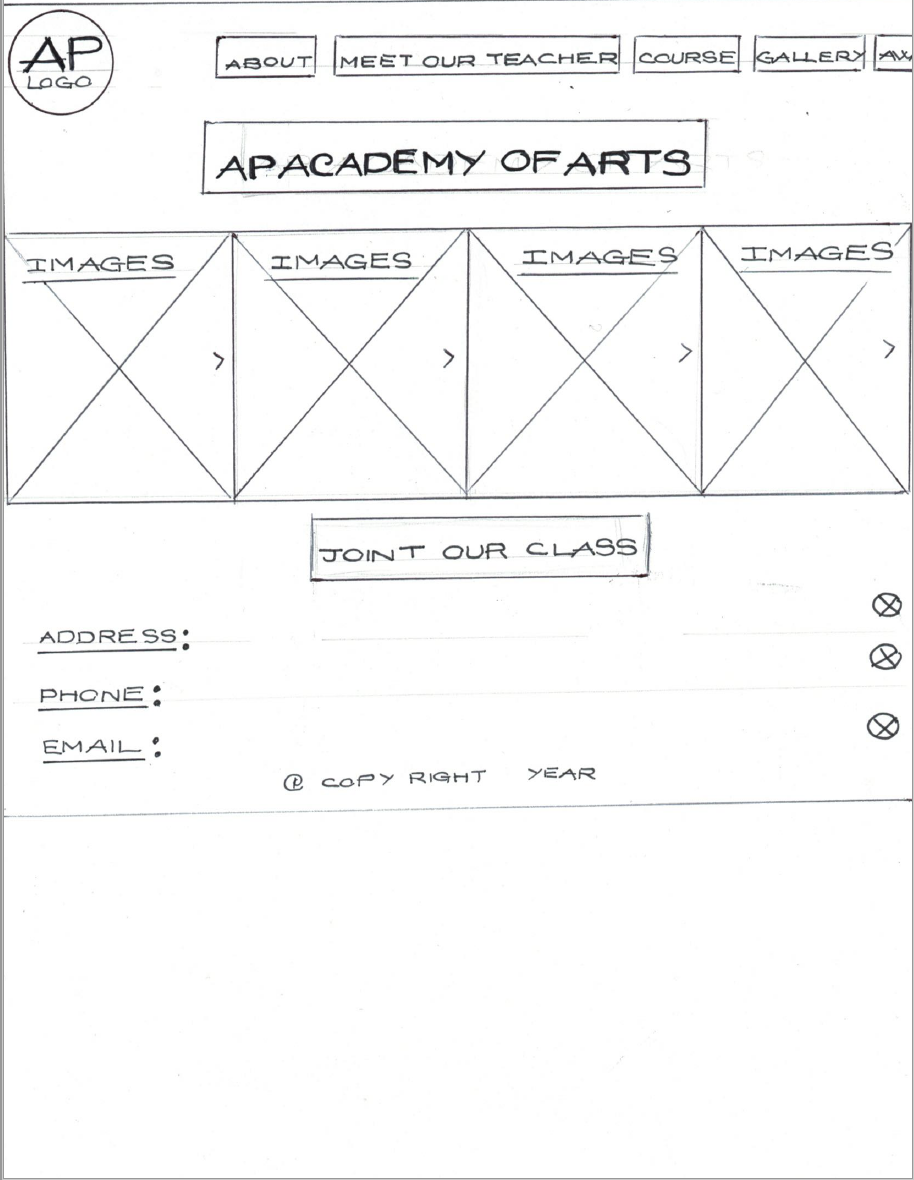 AP
LOGO
ABOUT MEET OUR TEACHER COURSE GALLERY
AP ACADEMY OF ARTS
IMAGES IMAGES IMAGES IMAGES
> > > >
JOINT OUR CLASS
ADDRESS:
PHONE:
EMAIL:
@ COPY RIGHT YEAR